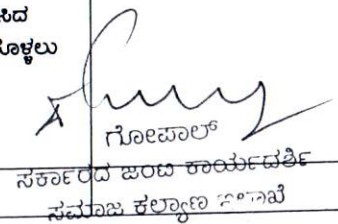 ಸಿದ
ೊಳ್ಳಲು
ಗೋಪಾಲ್
ಸರ್ಕಾರದ ಜಂಟಿ ಕಾರ್ಯದರ್ಶಿ
ಸಮಾಜ ಕಲ್ಯಾಣ ಇಲಾಖೆ